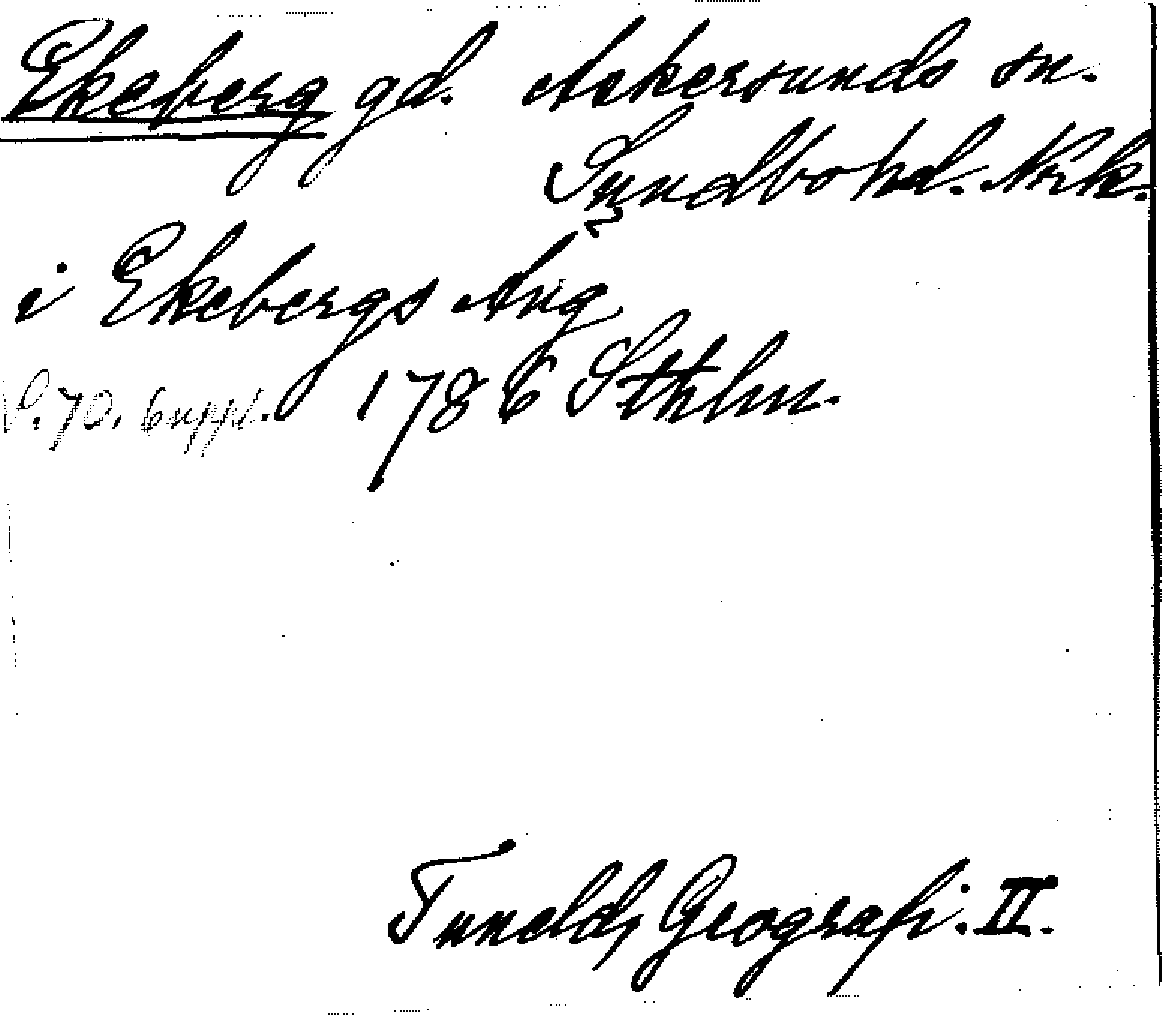 Ekeberg gd. Askersunds sn.
Sundbo hd. Nrk.
i Ekebergs Äng
S. 70. suppl. 1786 Sthlm.
Tunelds Geografi. II.